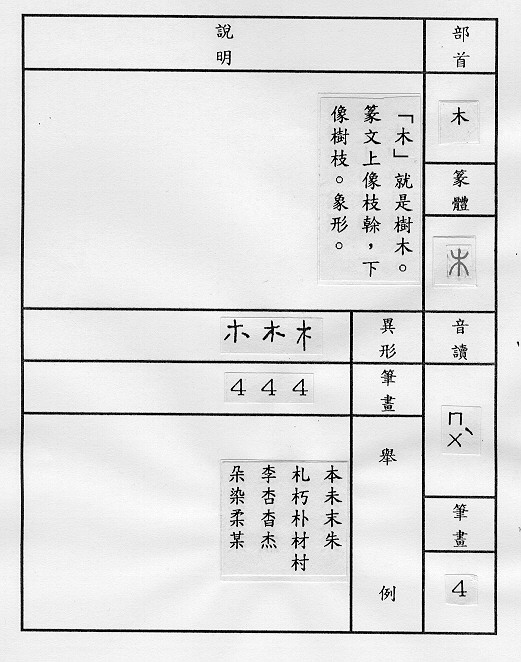 部首
木
篆體
木
音讀
ㄇㄨˋ
筆畫
4
說明
「木」就是樹木。
篆文上像枝榦，下
像樹枝。象形。
異形
木 木 木
筆畫
4 4 4
舉例
本未末朱
札朽朴材村
李杏杳杰
朵染柔某